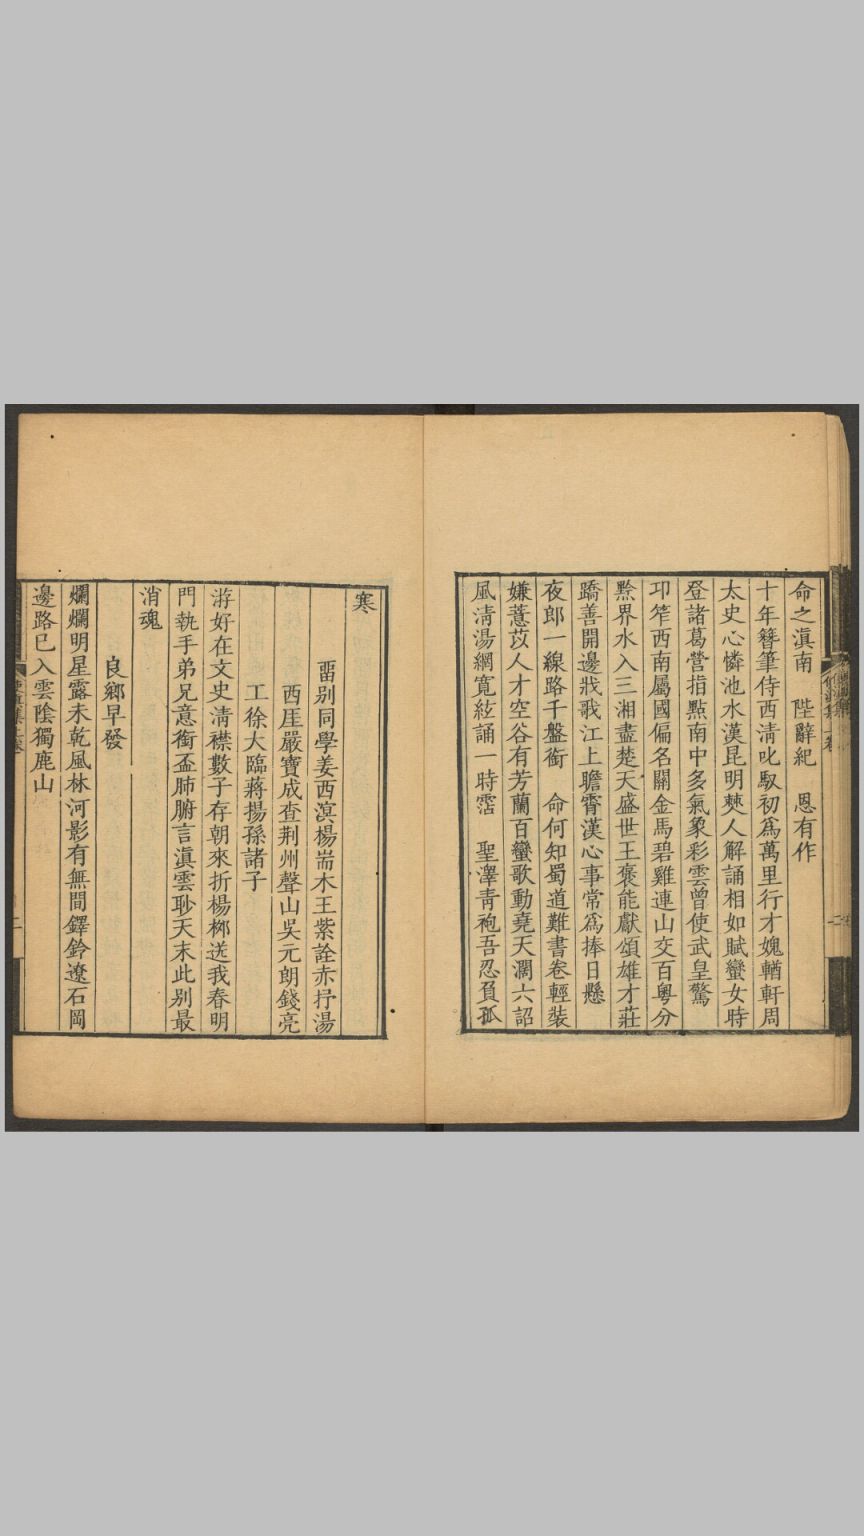 命之滇南　陛辭紀　恩有作
十年簪筆侍西清叱馭初爲萬里行才媿輶軒周
太史心憐池水漢昆明僰人解誦相如賦蠻女時
登諸葛營指點南中多氣象彩雲曾使武皇驚
卭笮西南屬國偏名關金馬碧雞連山交百粤分
黔界水入三湘盡楚天盛世王褒能獻頌雄才莊
蹻善開邊戕歌江上瞻霄漢心事常爲捧日懸
夜郎一線路千盤銜　命何知蜀道難書卷輕裝
嫌薏苡人才空谷有芳蘭百蠻歌動堯天濶六詔
風淸湯網寬絃誦一時霑　聖澤靑袍吾忍負孤
寒
畱别同學姜西溟楊耑木王紫詮赤抒湯
西厓嚴寶成查荆州聲山吳元朗錢亮
工徐大臨蔣揚孫諸子
游好在文史淸襟數子存朝來折楊桺送我春明
門執手弟兄意銜盃肺腑言滇雲聁天末此别最
消魂
良鄉早發
爛爛明星露未乾風林河影有無間鐸鈴遼石岡
邊路已入雲陰獨鹿山